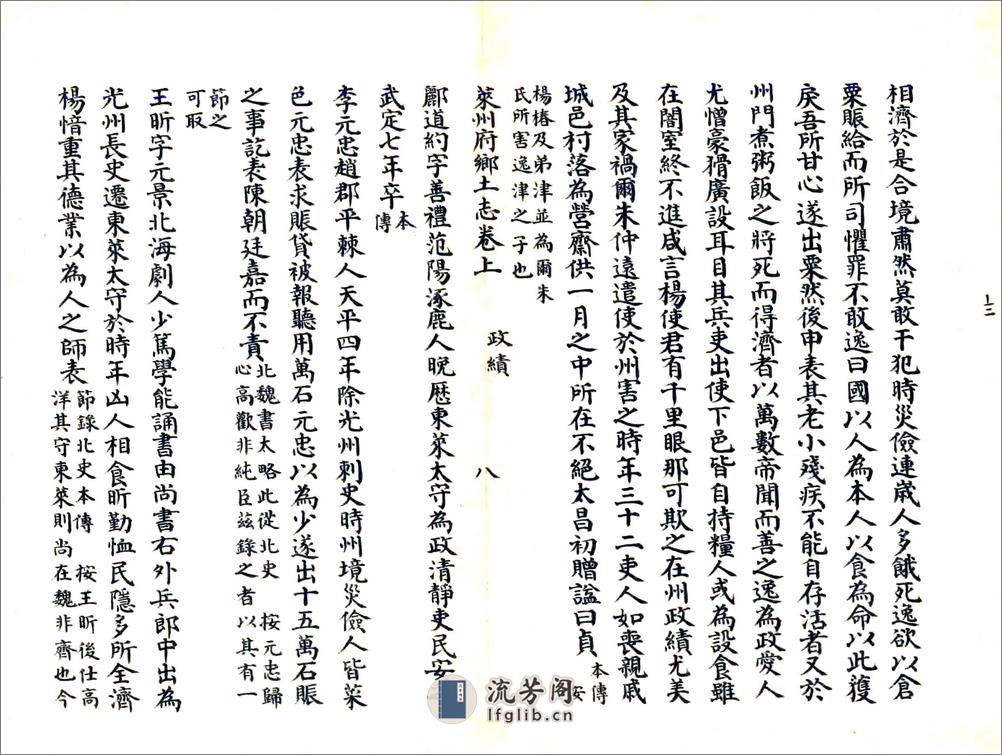 相濟於是合境肅然莫敢干犯時災儉連歲人多餓死逸欲以倉
粟賑給而所司懼罪不敢逸曰國以人為本人以食為命以此獲
戾吾所甘心遂出粟然後申表其老小殘疾不能自存活者又於
州門煮粥飯之將死而得濟者以萬數帝聞而善之逸為政愛人
尤憎豪猾廣設耳目其兵吏出使下邑皆自持糧人或為設食雖
在闇室終不進咸言楊使君有千里眼那可欺之在州政績尤美
及其家禍爾朱仲遠遣使於州害之時年三十二吏人如喪親戚
城邑村落為營齋供一月之中所在不絕太昌初贈諡曰貞
本傳 按
楊椿及弟津並為爾朱
氏所害逸津之子也
萊州府鄉土志卷上 政績 八
酈道約字善禮范陽涿鹿人晚歷東萊太守為政清靜吏民安之
武定七年卒
本
傳
李元忠趙郡平棘人天平四年除光州刺史時州境災儉人皆菜
色元忠表求賑貸被報聽用萬石元忠以為少遂出十五萬石賑
之事訖表陳朝廷嘉而不責
北魏書太略此從北史 按元忠歸
心高歡非純臣茲錄之者以其有一
節之
可取
王昕字元景北海劇人少篤學能誦書由尚書右外兵郎中出為
光州長史遷東萊太守於時年凶人相食昕勤恤民隱多所全濟
楊愔重其德業以為人之師表
節錄北史本傳 按王昕後仕高
洋其守東萊則尚在魏非齊也今
上三
流芳閣
lfglib.cn